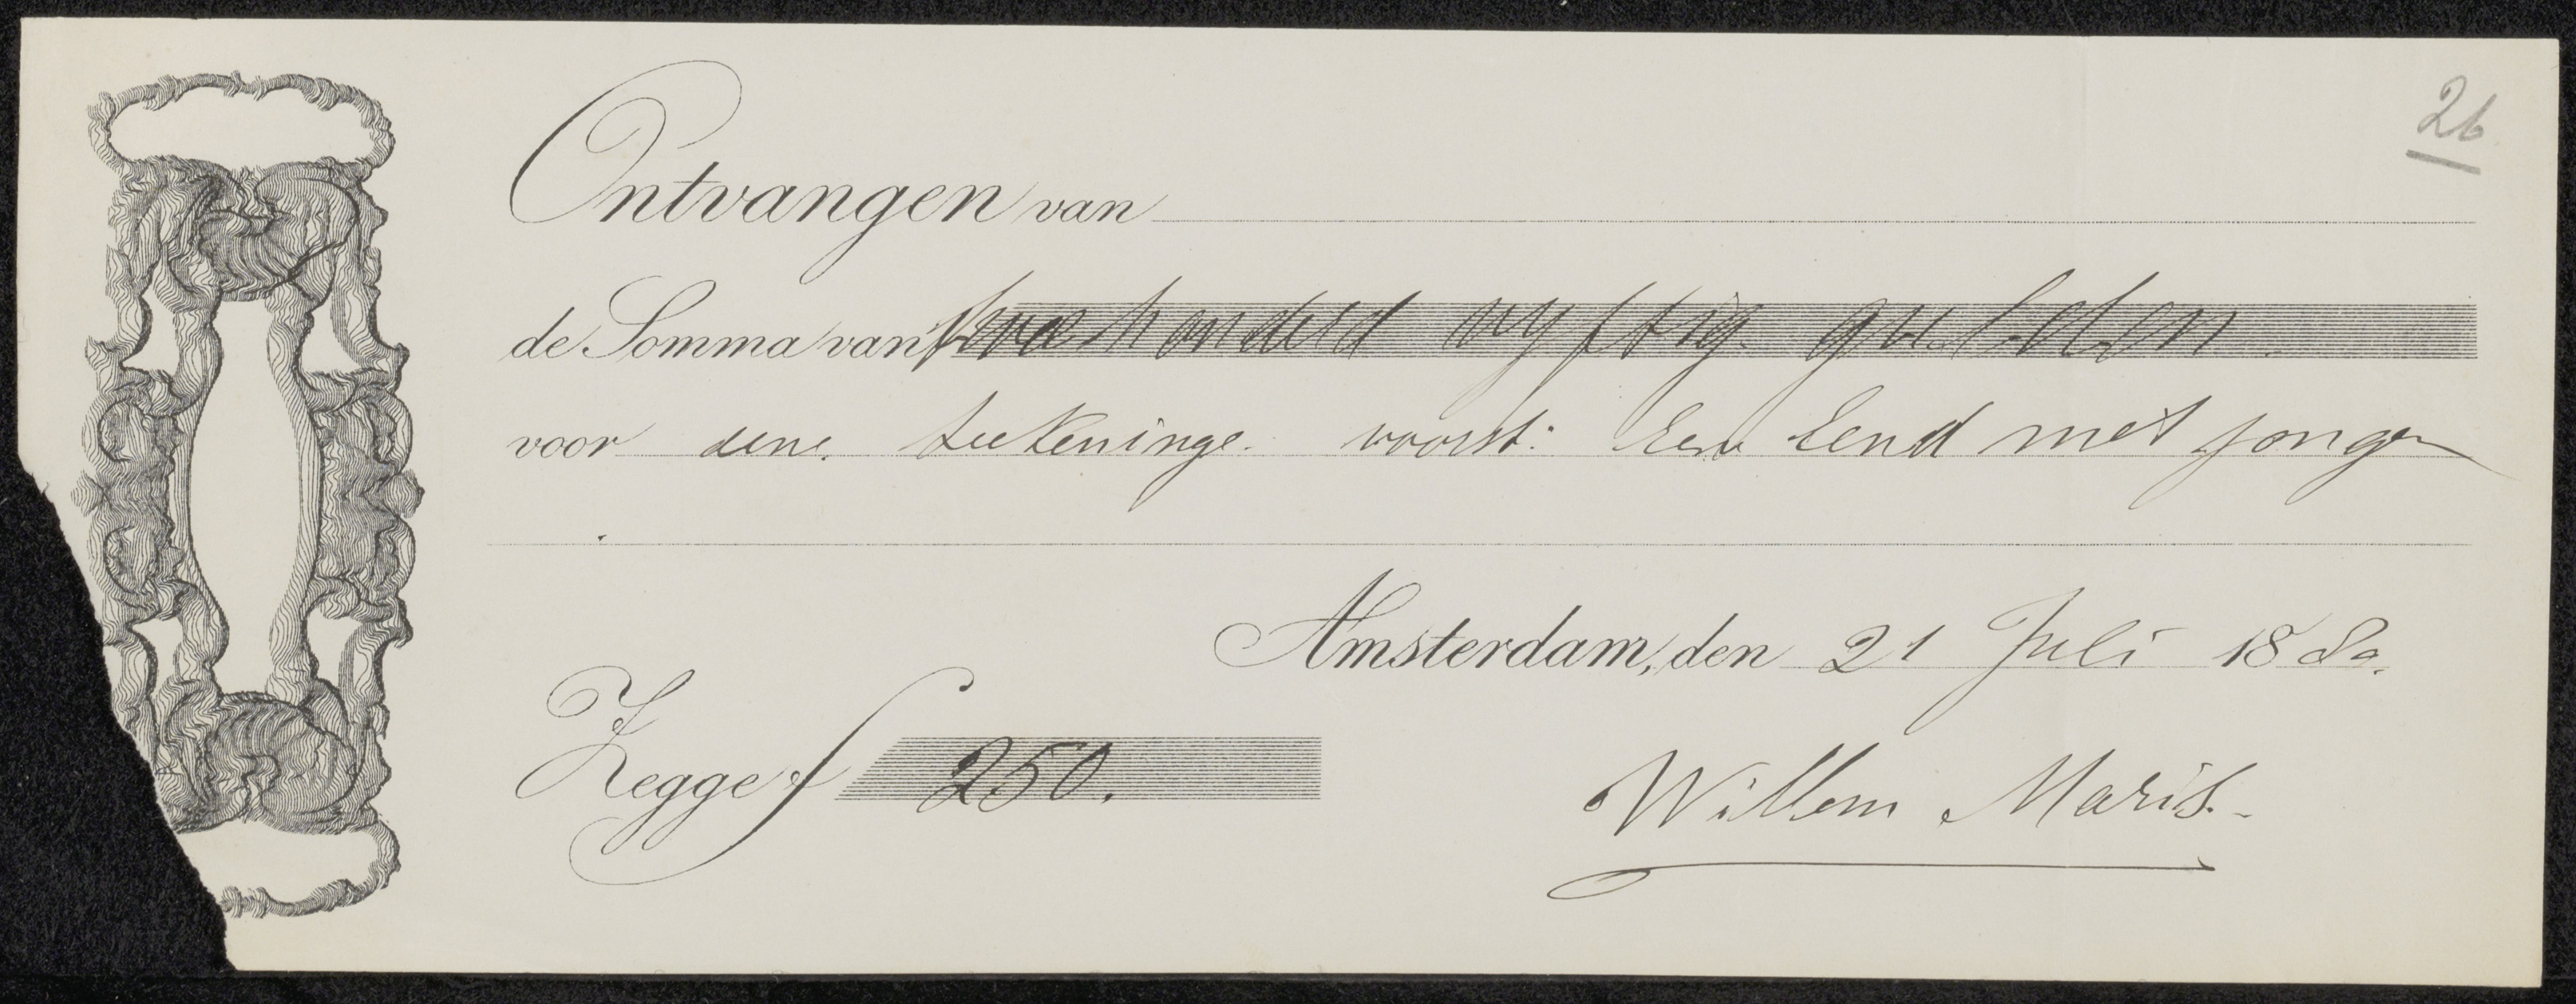 26
Ontvangen van
de Somma van Twee honderd vyftig gulden
voor eene teekeninge voorst: Een Eend met jongen
Amsterdam, den 21 Juli 1880.
Zegge f 250.
Willem Maris.